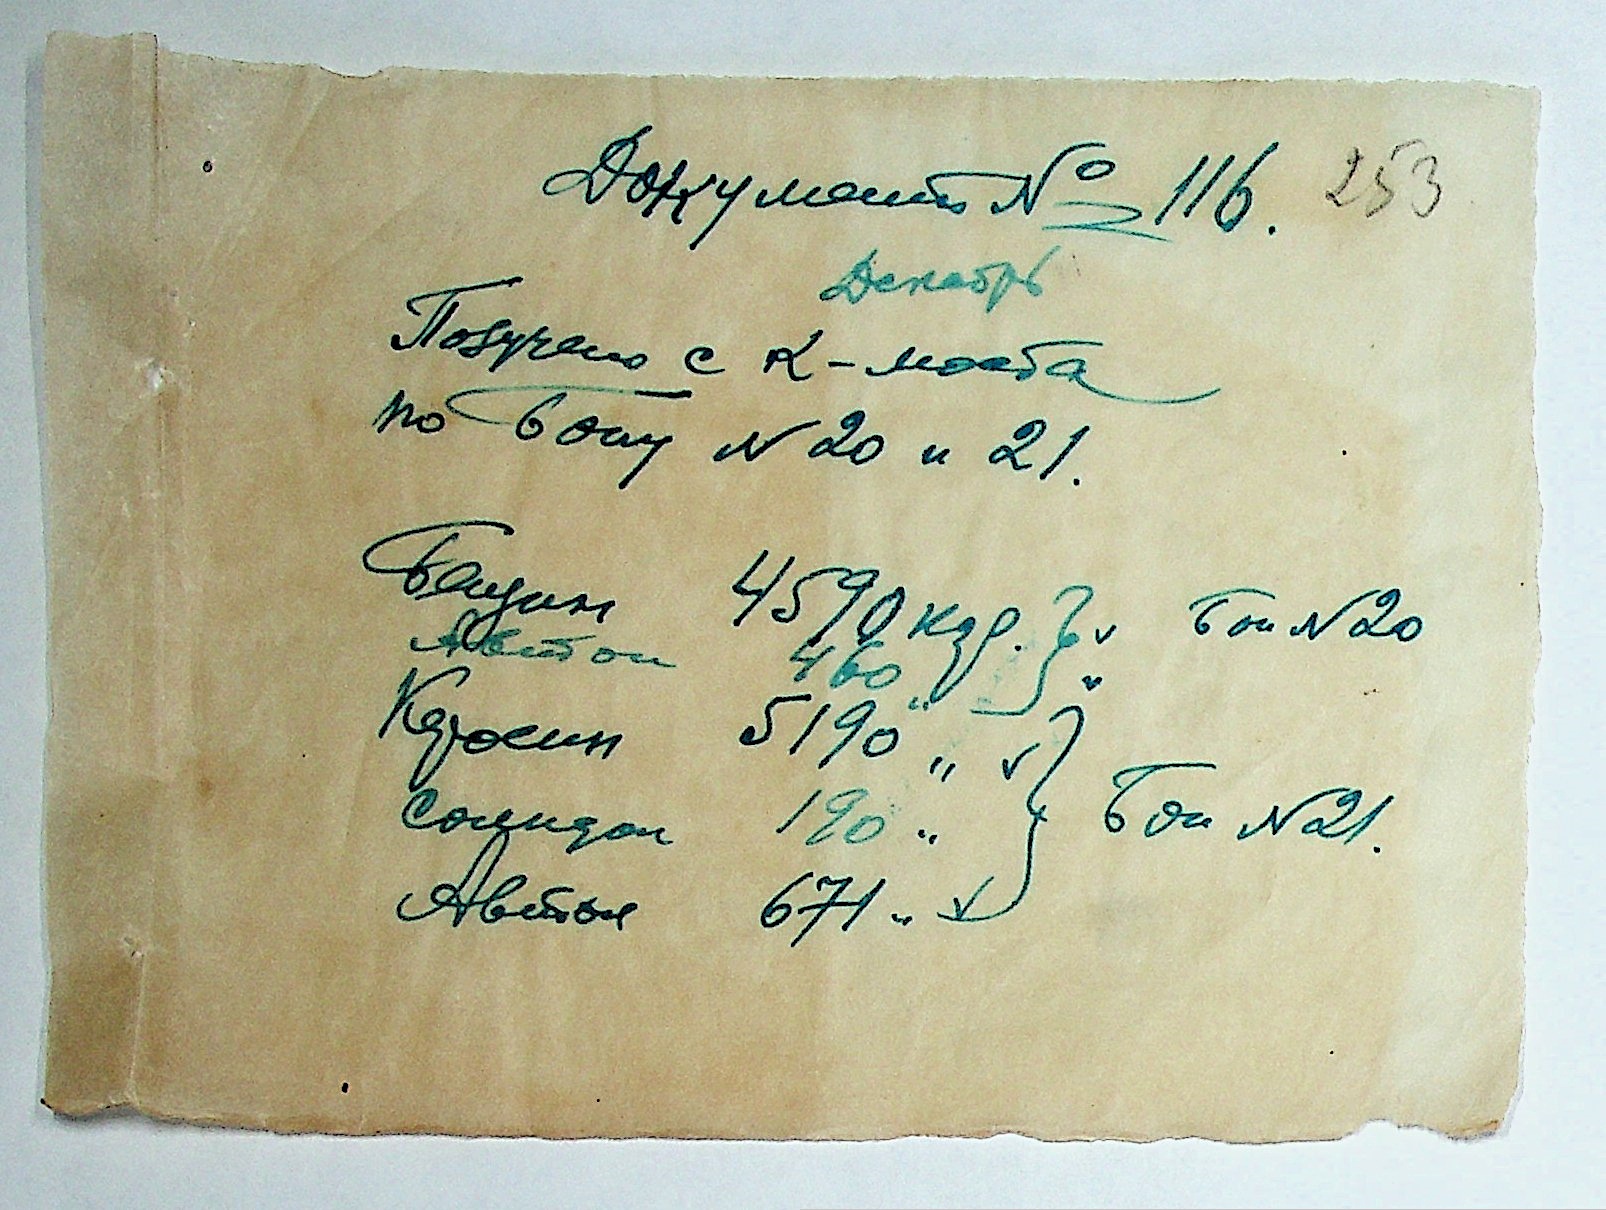 Документ № 116. 253
Декабрь
Получено с К-моста
по бону N 20 и 21.
Бензин 4590 кгр. Бон N 20
Автол 460 "
Керосин 5190 "
Солидол 190 " Бон N 21.
Автол 671 "